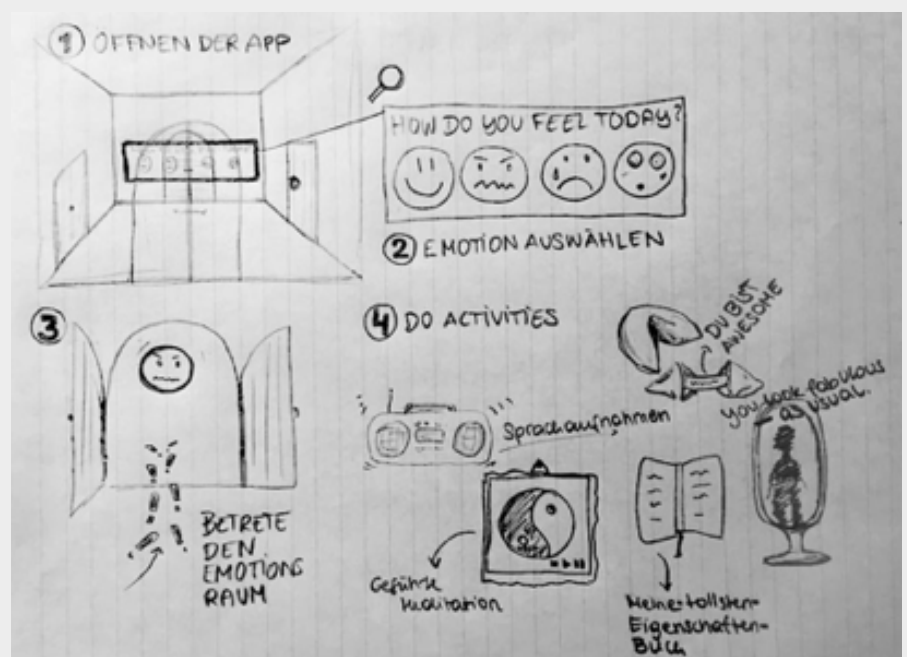 ① ÖFFNEN DER APP
HOW DO YOU FEEL TODAY?
② EMOTION AUSWÄHLEN
③
BETRETE
DEN
EMOTIONS
RAUM
④ DO ACTIVITIES
DU BIST
AWESOME
you look fabulous
as usual.
Sprachaufnahmen
Geführte
Meditation
Meine-tollsten-
Eigenschaften-
Buch